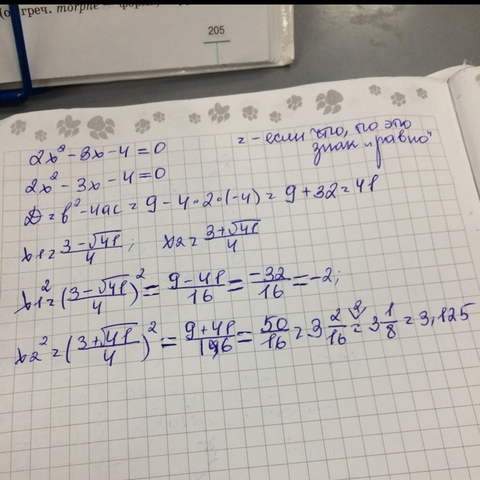 (о греч. morphe — форма,
205
2x² - 3x - 4 = 0
z - если что, то это знак „равно"
2x² - 3x - 4 = 0
D = b² - 4ac = 9 - 4 · 2 · (-4) = 9 + 32 = 41
x1 = (3 - √41)/4 ; x2 = (3 + √41)/4
x1² = ((3 - √41)/4)² = (9 - 41)/16 = -32/16 = -2;
x2² = ((3 + √41)/4)² = (9 + 41)/16 = 50/16 = 3 2/16 = 3 1/8 = 3,125